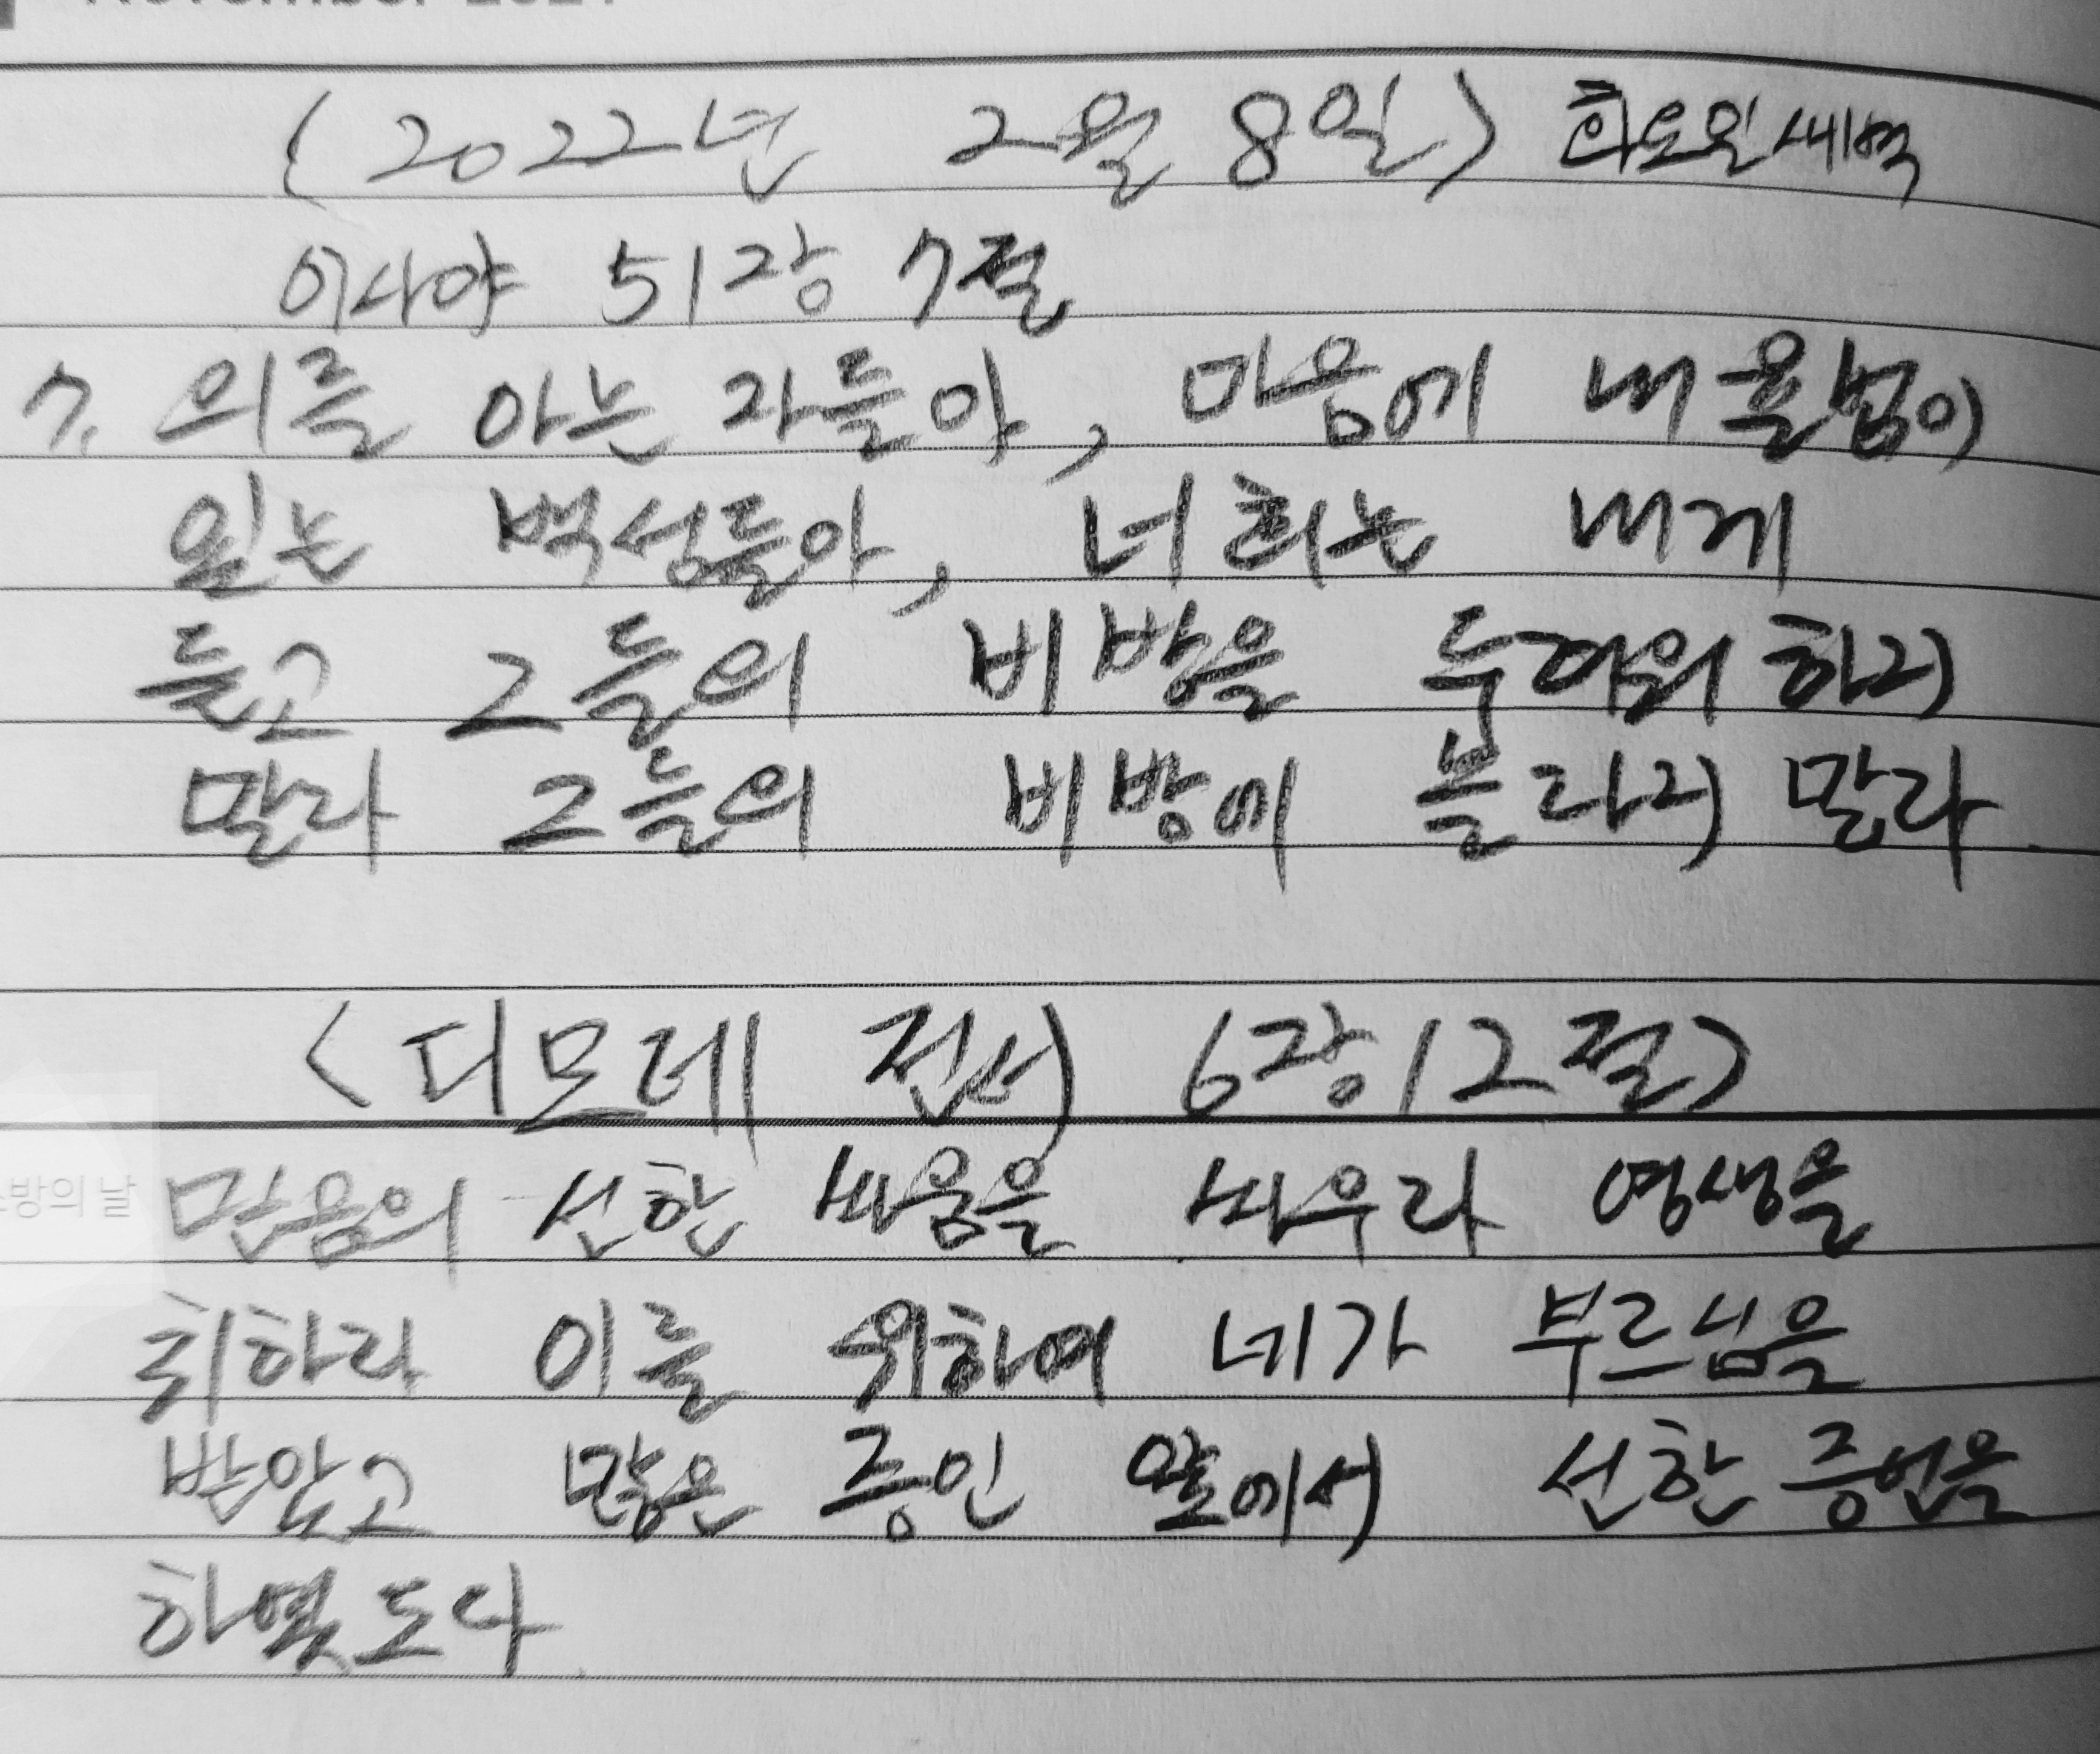 (2022년 2월 8일) 화요일새벽
이사야 51장 7절
7. 의를 아는 자들아, 마음에 내 율법이
있는 백성들아, 너희는 내게
듣고 그들의 비방을 두려워 하지
말라 그들의 비방에 놀라지 말라
<디모데 전서 6장12절>
믿음의 선한 싸움을 싸우라 영생을
방의 날
취하라 이를 위하여 네가 부르심을
받았고 많은 증인 앞에서 선한 증언을
하였도다